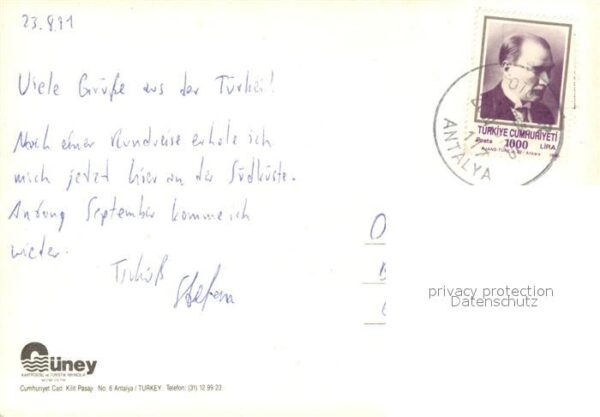 23.8.91
Viele Grüße aus der Türkei!
Nach einer Rundreise erhole ich
mich jetzt hier an der Südküste.
Anfang September komme ich
wieder.
Tschüß
Stefan
TÜRKİYE CUMHURİYETİ
Posta 1000 LİRA
ANTALYA
privacy protection
Datenschutz
Güney
Cumhuriyet Cad. Kilit Pasajı No. 6 Antalya / TURKEY Telefon: (31) 12 99 23